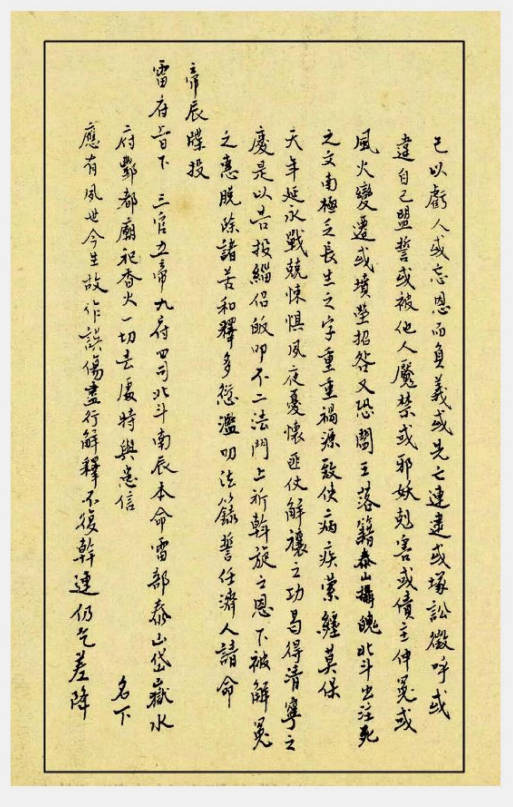 己以虧人或忘恩而負義或先亡連逮或塚訟徵呼或
違自己盟誓或被他人魘禁或邪妖剋害或債主伸冤或
風火變遷或墳塋招咎又恐閻王落籍泰山攝魄北斗出注死
之文南極乏長生之字重重禍源致使病疾縈纏莫保
天年延永戰兢悚惧夙夜憂懷匪仗解禳之功曷得清寧之
慶是以吿投緇侶皈叩不二法門上祈斡旋之恩下被解冤
之惠脫除諸苦和釋多愆濫叨法籙誓任濟人請命
帝辰牒投
雷府旨下 三官五帝九府四司北斗南辰本命雷部泰山岱嶽水
府酆都廟祀香火一切去處特與患信 名下
應有夙世今生故作誤傷盡行解釋不復幹連仍乞差降